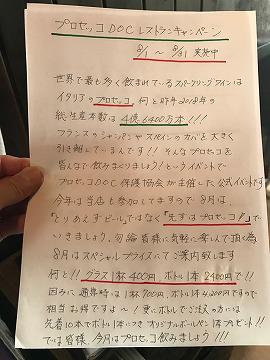 プロセッコDOCレストランキャンペーン
8/1 ～ 8/31 実施中
世界で最も多く飲まれているスパークリングワインは
イタリアのプロセッコ 何と昨年2018年の
総生産本数は4億6400万本!!!
フランスのシャンパンやスペインのカバを大きく
引き離しているんです!! そんなプロセッコを
皆んなで飲みまくりましょう!というイベントで
プロセッコDOC保護協会が主催した公式イベントです
今年は当店も参加してますので8月は、
「とりあえずビール」ではなく「先ずはプロセッコ!!」で
いきましょう、勿論皆様に気軽に楽しんで頂く為
8月はスペシャルプライスにてご案内致します
何と!! グラス1杯400円、ボトル1本2400円で!!
因みに通常時は1杯700円、ボトル1本4,200円ですので
相当お得ですよ～! 更にボトルでご注文の方には
先着10本でボトル1本につきオリジナルボールペン1本プレゼント!!
では皆様、今月はプロセッコ飲みましょう!!!